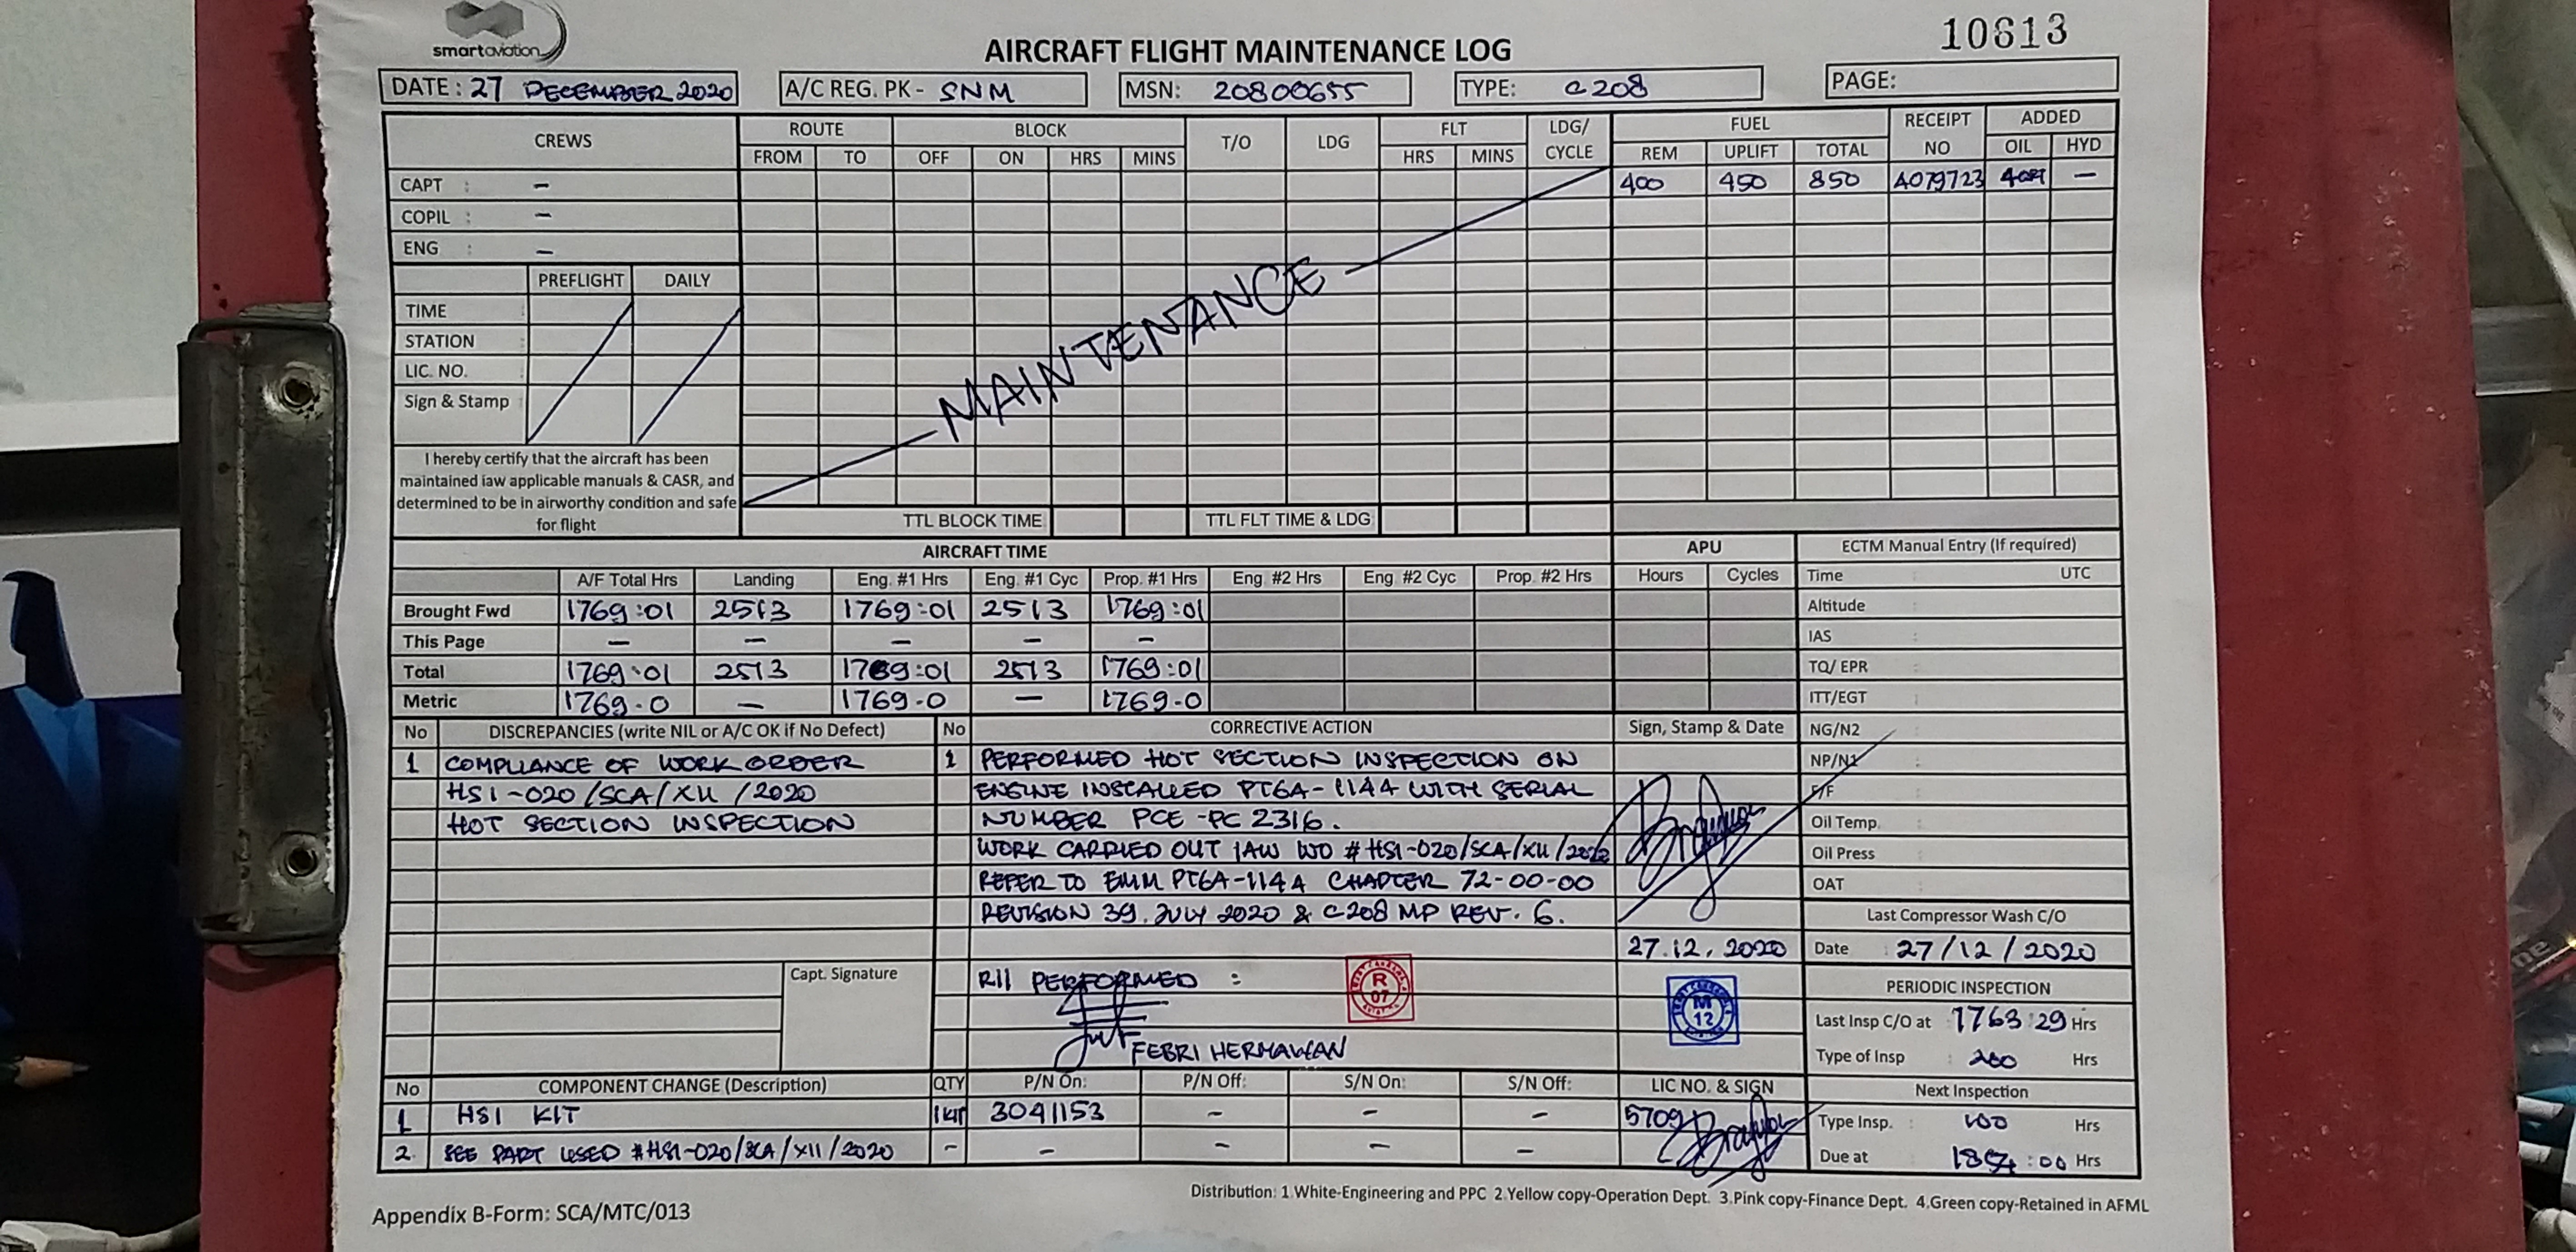 smartaviation
10613
AIRCRAFT FLIGHT MAINTENANCE LOG
DATE : 27 DECEMBER 2020 A/C REG. PK - SNM MSN: 20800655 TYPE: C208 PAGE:
CREWS ROUTE BLOCK T/O LDG FLT LDG/ CYCLE FUEL RECEIPT NO ADDED
FROM TO OFF ON HRS MINS HRS MINS REM UPLIFT TOTAL OIL HYD
CAPT : – 400 450 850 4079723 —
COPIL : –
ENG –
PREFLIGHT DAILY
TIME
STATION
LIC. NO.
Sign & Stamp
MAINTENANCE
I hereby certify that the aircraft has been
maintained iaw applicable manuals & CASR, and
determined to be in airworthy condition and safe
for flight
TTL BLOCK TIME TTL FLT TIME & LDG
AIRCRAFT TIME APU ECTM Manual Entry (If required)
A/F Total Hrs Landing Eng. #1 Hrs Eng. #1 Cyc Prop. #1 Hrs Eng. #2 Hrs Eng. #2 Cyc Prop. #2 Hrs Hours Cycles Time : UTC
Brought Fwd 1769:01 2513 1769:01 2513 1769:01 Altitude :
This Page – – – – – IAS :
Total 1769:01 2513 1769:01 2513 1769:01 TQ/ EPR :
Metric 1769.0 – 1769.0 – 1769.0 ITT/EGT :
No DISCREPANCIES (write NIL or A/C OK if No Defect) No CORRECTIVE ACTION Sign, Stamp & Date NG/N2 :
1 COMPLIANCE OF WORK ORDER 1 PERFORMED HOT SECTION INSPECTION ON NP/N1 :
HSI-020/SCA/XII/2020 ENGINE INSTALLED PT6A-114A WITH SERIAL F/F
HOT SECTION INSPECTION NUMBER PCE-PC2316. Oil Temp. :
WORK CARRIED OUT IAW WO #HSI-020/SCA/XII/2020 Oil Press :
REFER TO EMM PT6A-114A CHAPTER 72-00-00 OAT :
REVISION 39. JULY 2020 & C208 MP REV. 6. Last Compressor Wash C/O
27.12.2020 Date : 27/12/2020
Capt. Signature RII PERFORMED : R 07 M 12 PERIODIC INSPECTION
Last Insp C/O at : 1763:29 Hrs
FEBRI HERMAWAN Type of Insp : 200 Hrs
No COMPONENT CHANGE (Description) QTY P/N On: P/N Off: S/N On: S/N Off: LIC NO. & SIGN Next Inspection
1 HSI KIT 1 KIT 3041153 – – – 5709 Type Insp. : 100 Hrs
2. SEE PART USED #HSI-020/SCA/XII/2020 – – – – – Due at : Hrs
Distribution: 1.White-Engineering and PPC 2.Yellow copy-Operation Dept. 3.Pink copy-Finance Dept. 4.Green copy-Retained in AFML
Appendix B-Form: SCA/MTC/013